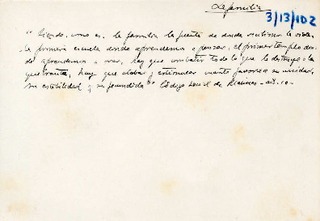 La familia
3/13/102
"Siendo, como es, la familia la fuente de donde mana la vida,
la primera escuela donde aprendemos a pensar, el primer templo don-
de aprendemos a orar, hay que combatir todo lo que la destruya o la
quebrante, hay que alabar y estimular cuanto favorezca su unidad,
su estabilidad y su fecundidad" Código Social de Malinas - art. 10 -